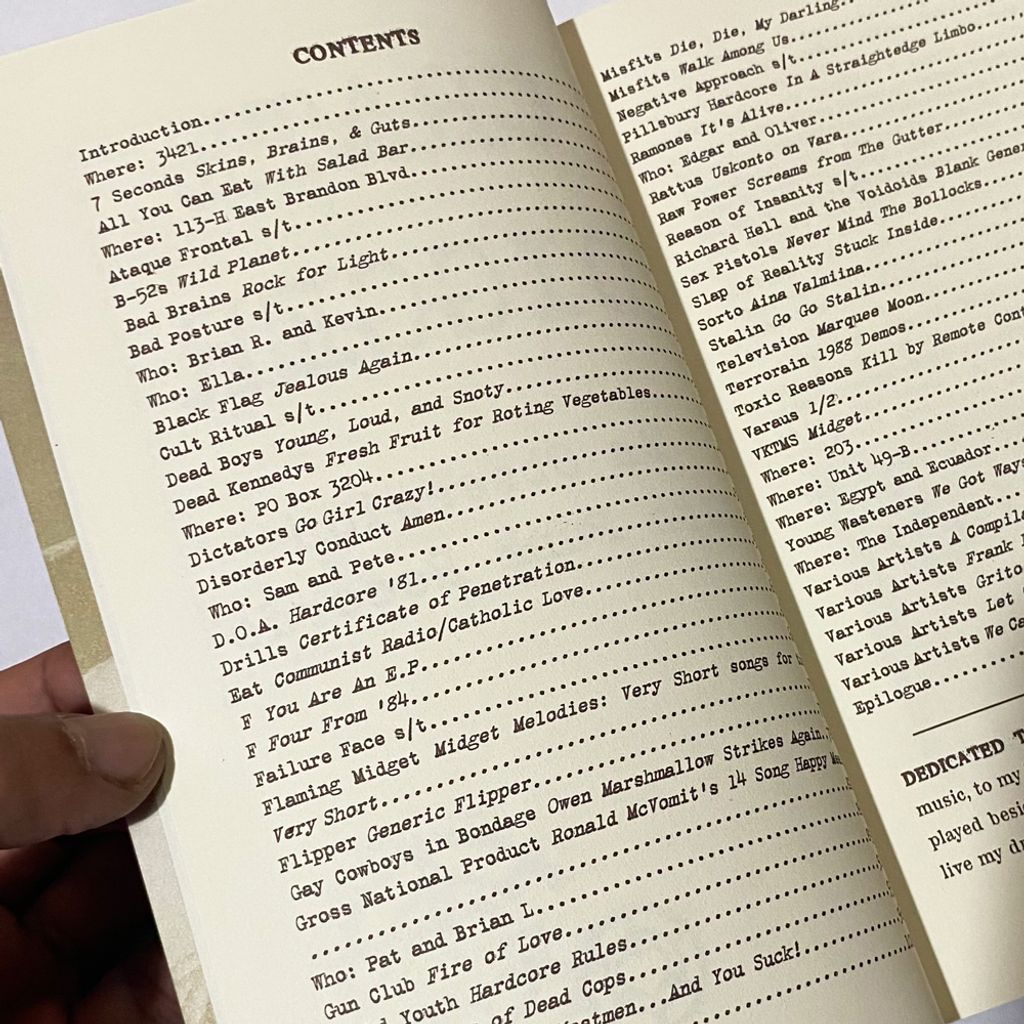 CONTENTS
Introduction..............................
Where: 3421..............................
7 Seconds Skins, Brains, & Guts..............................
All You Can Eat With Salad Bar..............................
Where: 113-H East Brandon Blvd..............................
Ataque Frontal s/t..............................
B-52s Wild Planet..............................
Bad Brains Rock for Light..............................
Bad Posture s/t..............................
Who: Brian R. and Kevin..............................
Who: Ella..............................
Black Flag Jealous Again..............................
Cult Ritual s/t..............................
Dead Boys Young, Loud, and Snoty..............................
Dead Kennedys Fresh Fruit for Roting Vegetables..........
Where: PO Box 3204..............................
Dictators Go Girl Crazy!..............................
Disorderly Conduct Amen..............................
Who: Sam and Pete..............................
D.O.A. Hardcore '81..............................
Drills Certificate of Penetration..............................
Eat Communist Radio/Catholic Love..............................
F You Are An E.P..............................
F Four From '84..............................
Failure Face s/t..............................
Flaming Midget Midget Melodies: Very Short songs for
Very Short..............................
Flipper Generic Flipper..............................
Gay Cowboys in Bondage Owen Marshmallow Strikes Again..
Gross National Product Ronald McVomit's 14 Song Happy
..............................
Who: Pat and Brian L..............................
Gun Club Fire of Love..............................
Youth Hardcore Rules..............................
of Dead Cops..............................
...And You Suck!..............................
Misfits Die, Die, My Darling..
Misfits Walk Among Us..........
Negative Approach s/t..........
Pillsbury Hardcore In A Straightedge Limbo....
Ramones It's Alive..............................
Who: Edgar and Oliver..............................
Rattus Uskonto on Vara..............................
Raw Power Screams from The Gutter..........
Reason of Insanity s/t..............................
Richard Hell and the Voidoids Blank
Sex Pistols Never Mind The Bollocks......
Slap of Reality Stuck Inside..........
Sorto Aina Valmiina..............................
Stalin Go Go Stalin..............................
Television Marquee Moon..........
Terrorain 1988 Demos..........
Toxic Reasons Kill by Remote
Varaus 1/2..............................
VKTMS Midget..............................
Where: 203..............................
Where: Unit 49-B..........
Where: Egypt and Ecuador....
Young Wasteners We Got Ways
Where: The Independent......
Various Artists A
Various Artists Frank
Various Artists
Various Artists Let
Various Artists We
Epilogue..........
DEDICATED
music, to my
played
live my